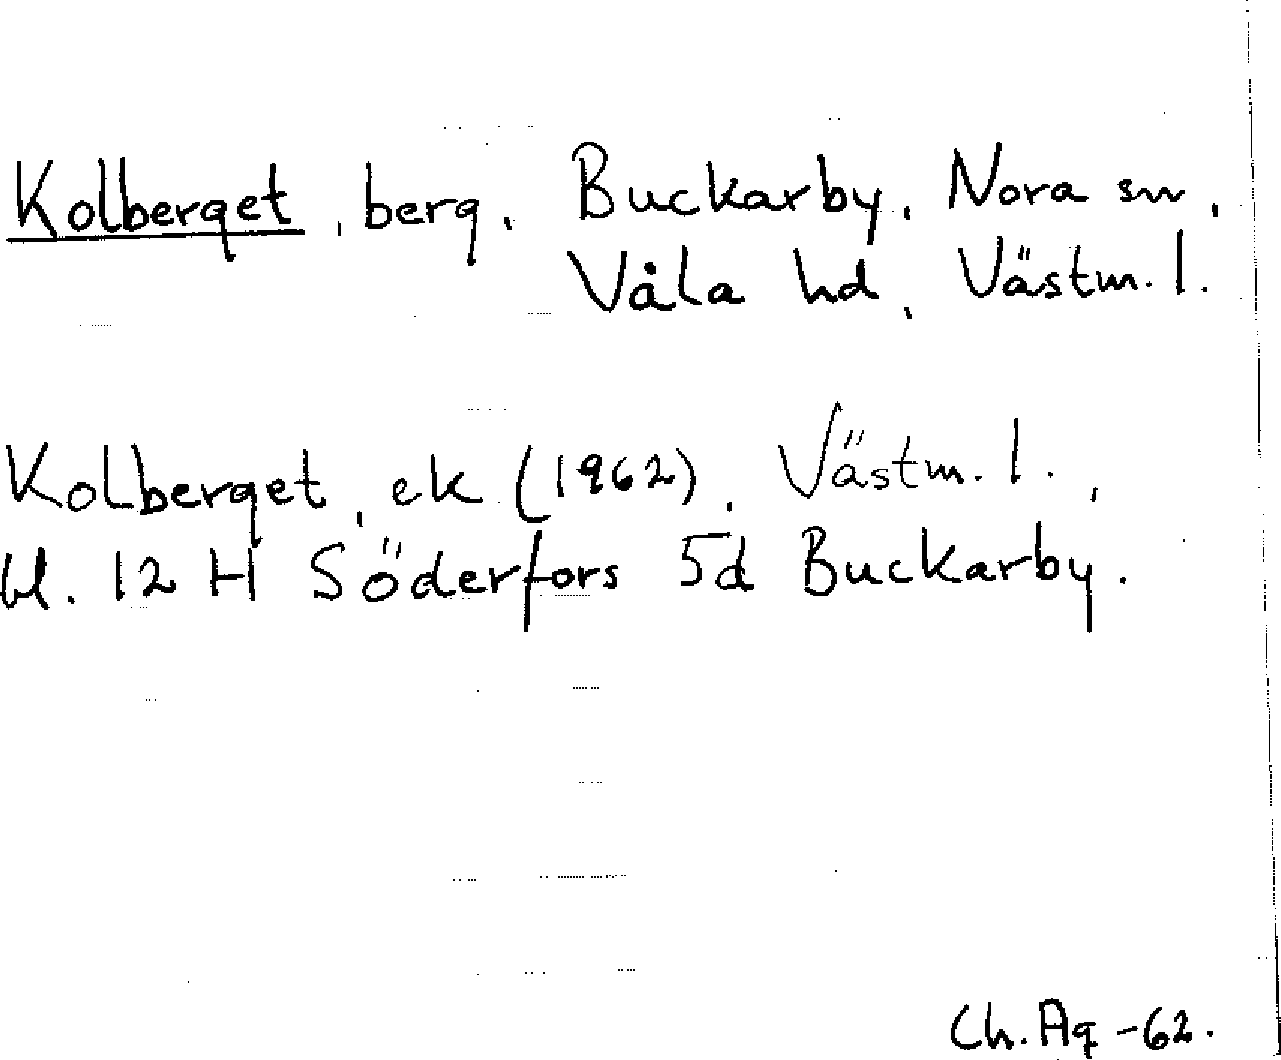 Kolberget, berg, Buckarby, Nora sn,
Våla hd, Västm. l.
Kolberget, ek (1962), Västm. l.,
bl. 12 H Söderfors 5d Buckarby.
Ch. Ag -62.